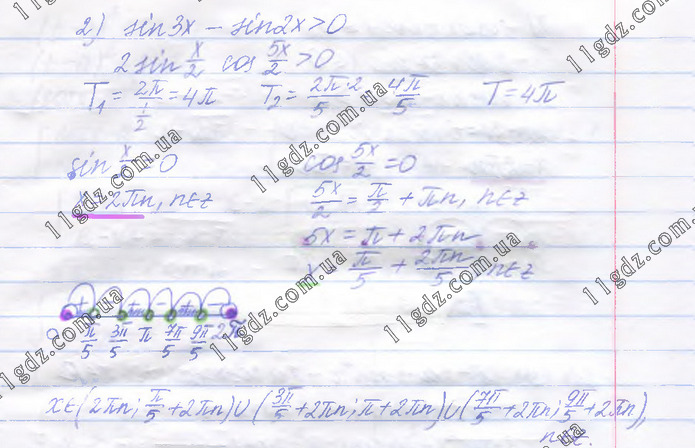 2) sin3x - sin2x>0
2sin x/2 cos 5x/2 >0
T₁ = 2π/(1/2) = 4π T₂ = 2π·2/5 4π/5 T = 4π
sin x/ 0 cos 5x/2 = 0
2πn, n∈z 5x/2 = π/2 + πn, n∈z
5x = π + 2πn
π/5 + 2πn/5 n∈z
+ - + - + -
0 π/5 3π/5 π 7π/5 9π/5 2π
x∈(2πn; π/5 +2πn)∪(3π/5 +2πn; π+2πn)∪(7π/5 +2πn; 9π/5 +2πn),
n∈z.
11gdz.com.ua
11gdz.com.ua
11gdz.com.ua
11gdz.com.ua
11gdz.com.ua
11gdz.com.ua
11gdz.com.ua